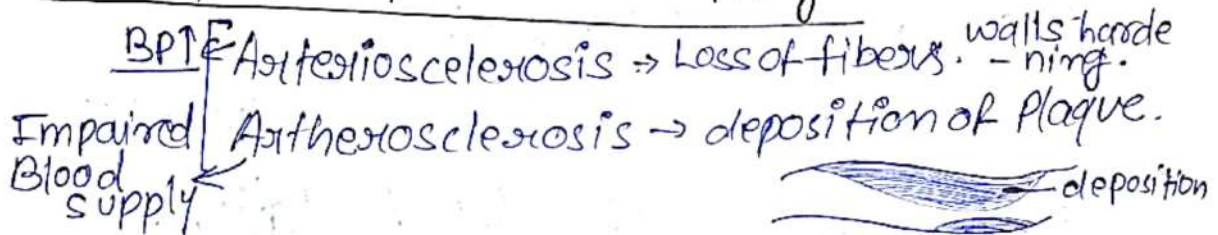 BP↑ Arterioscelerosis → Loss of fibers. walls harde-ning.
Impaired Blood supply
Artherosclerosis → deposition of Plaque.
deposition